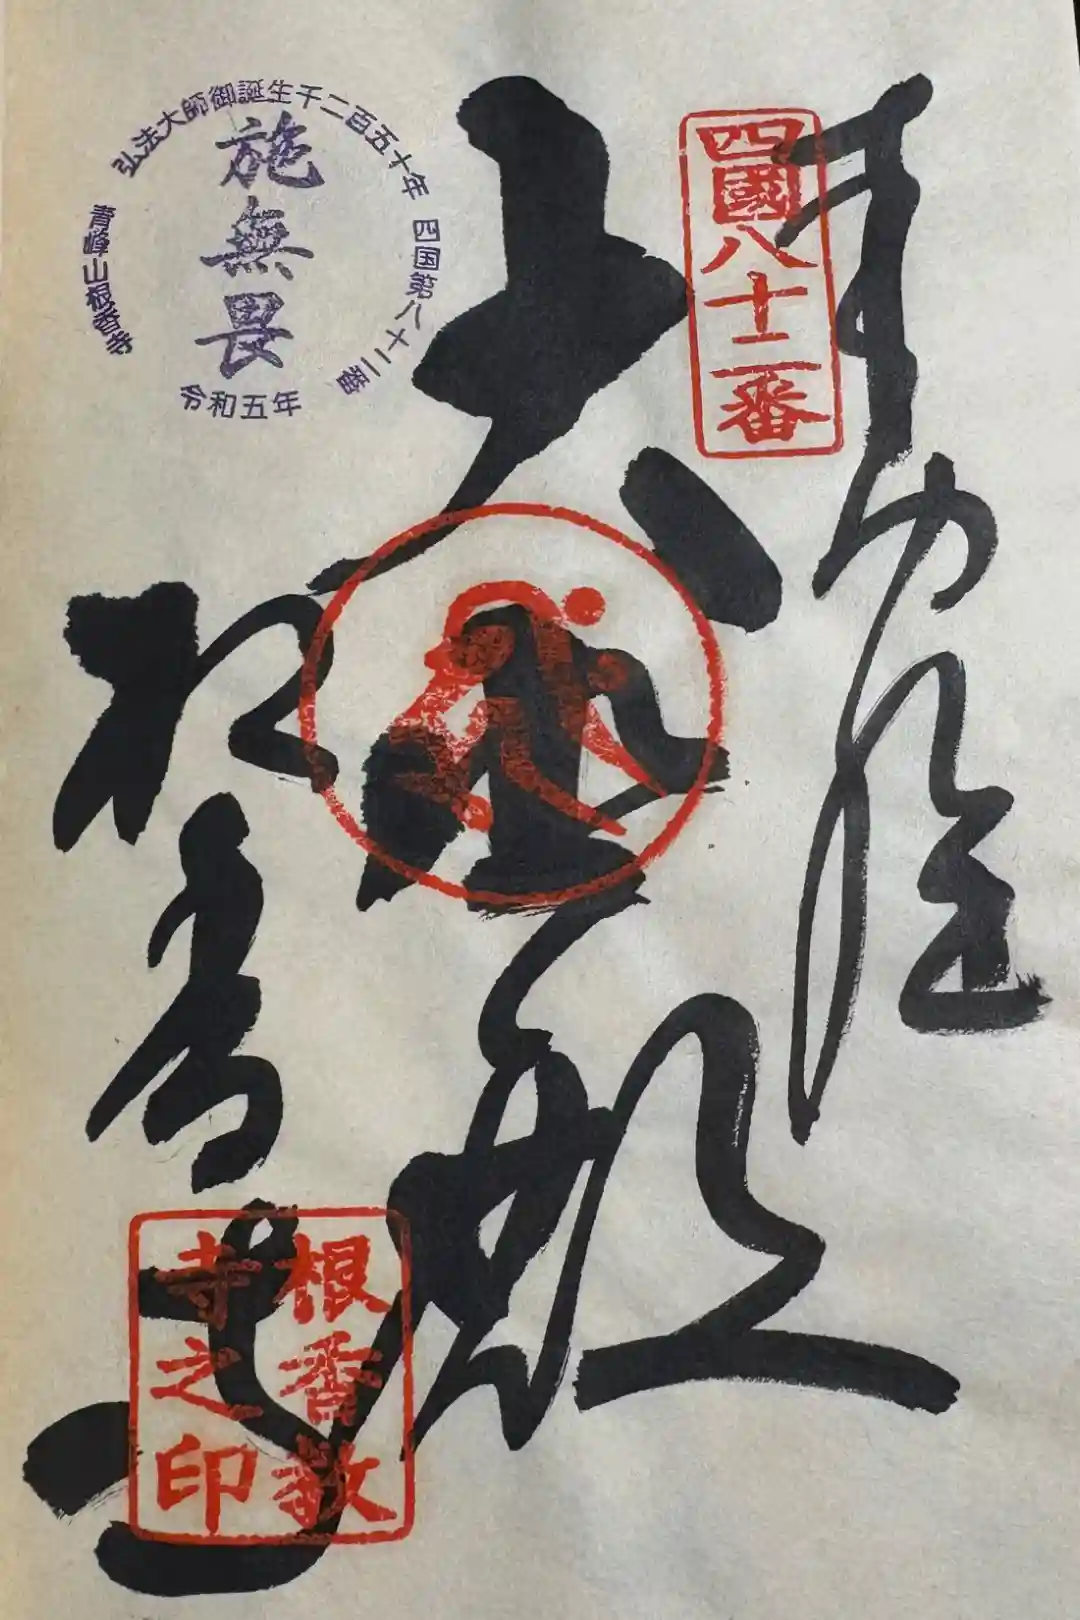 四國八十二番
大悲殿
根香寺
根香教
寺之印
弘法大師御誕生千二百五十年
四国第八十二番
施無畏
青峰山根香寺
令和五年